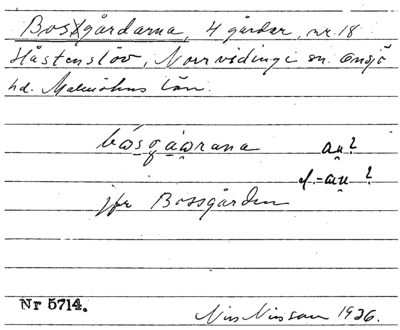 Bosgårdarna, 4 gårdar, nr. 18
Håstenslöv, Norrvidinge sn. Onsjö
hd. Malmöhus län.
au ?
el. -au ?
jfr Bossgården
Nr 5714.
Nils Nilsson 1926.